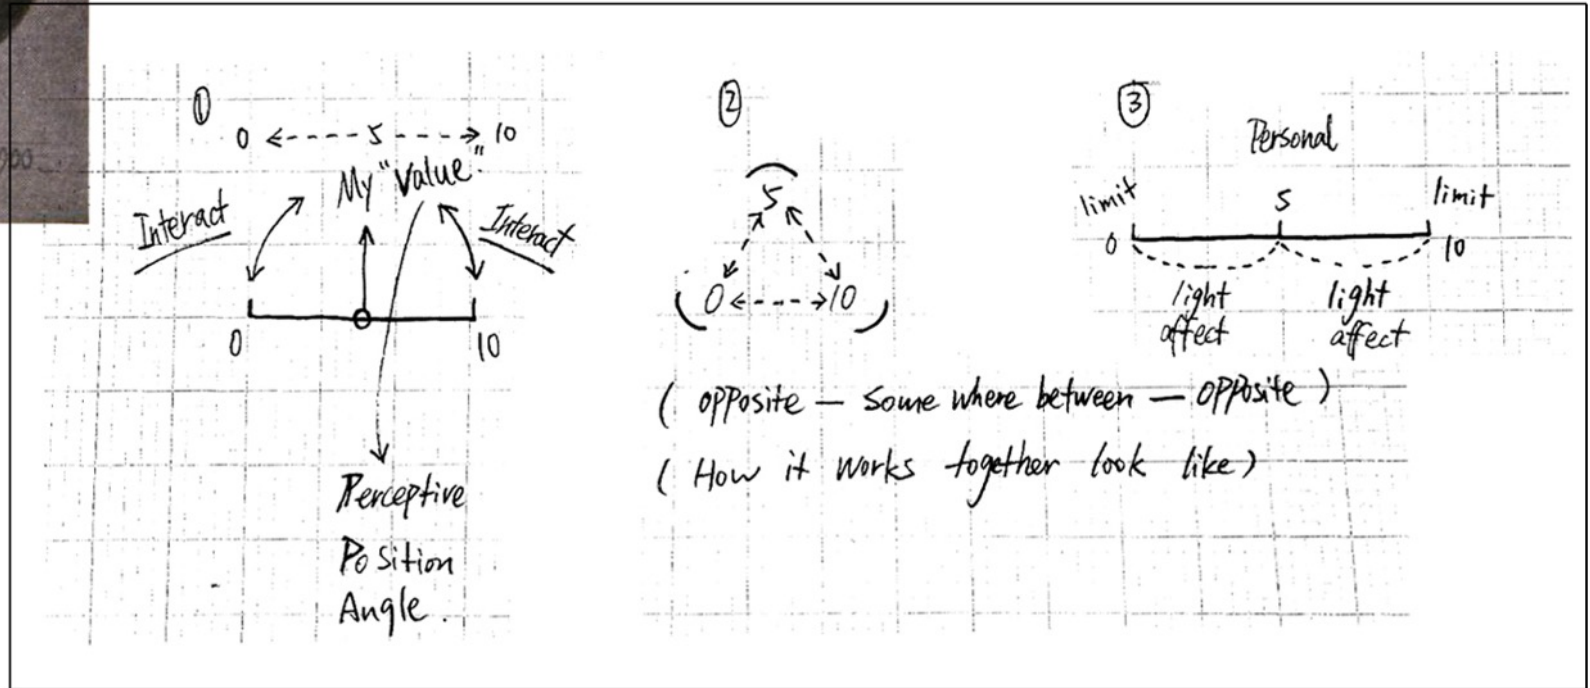 ①
0 5 10
My "Value."
Interact
Interact
0 10
Perceptive
Position
Angle.
②
5
0 10
( opposite – Some where between – opposite )
( How it works together look like )
③
Personal
limit 5 limit
0 10
light light
affect affect